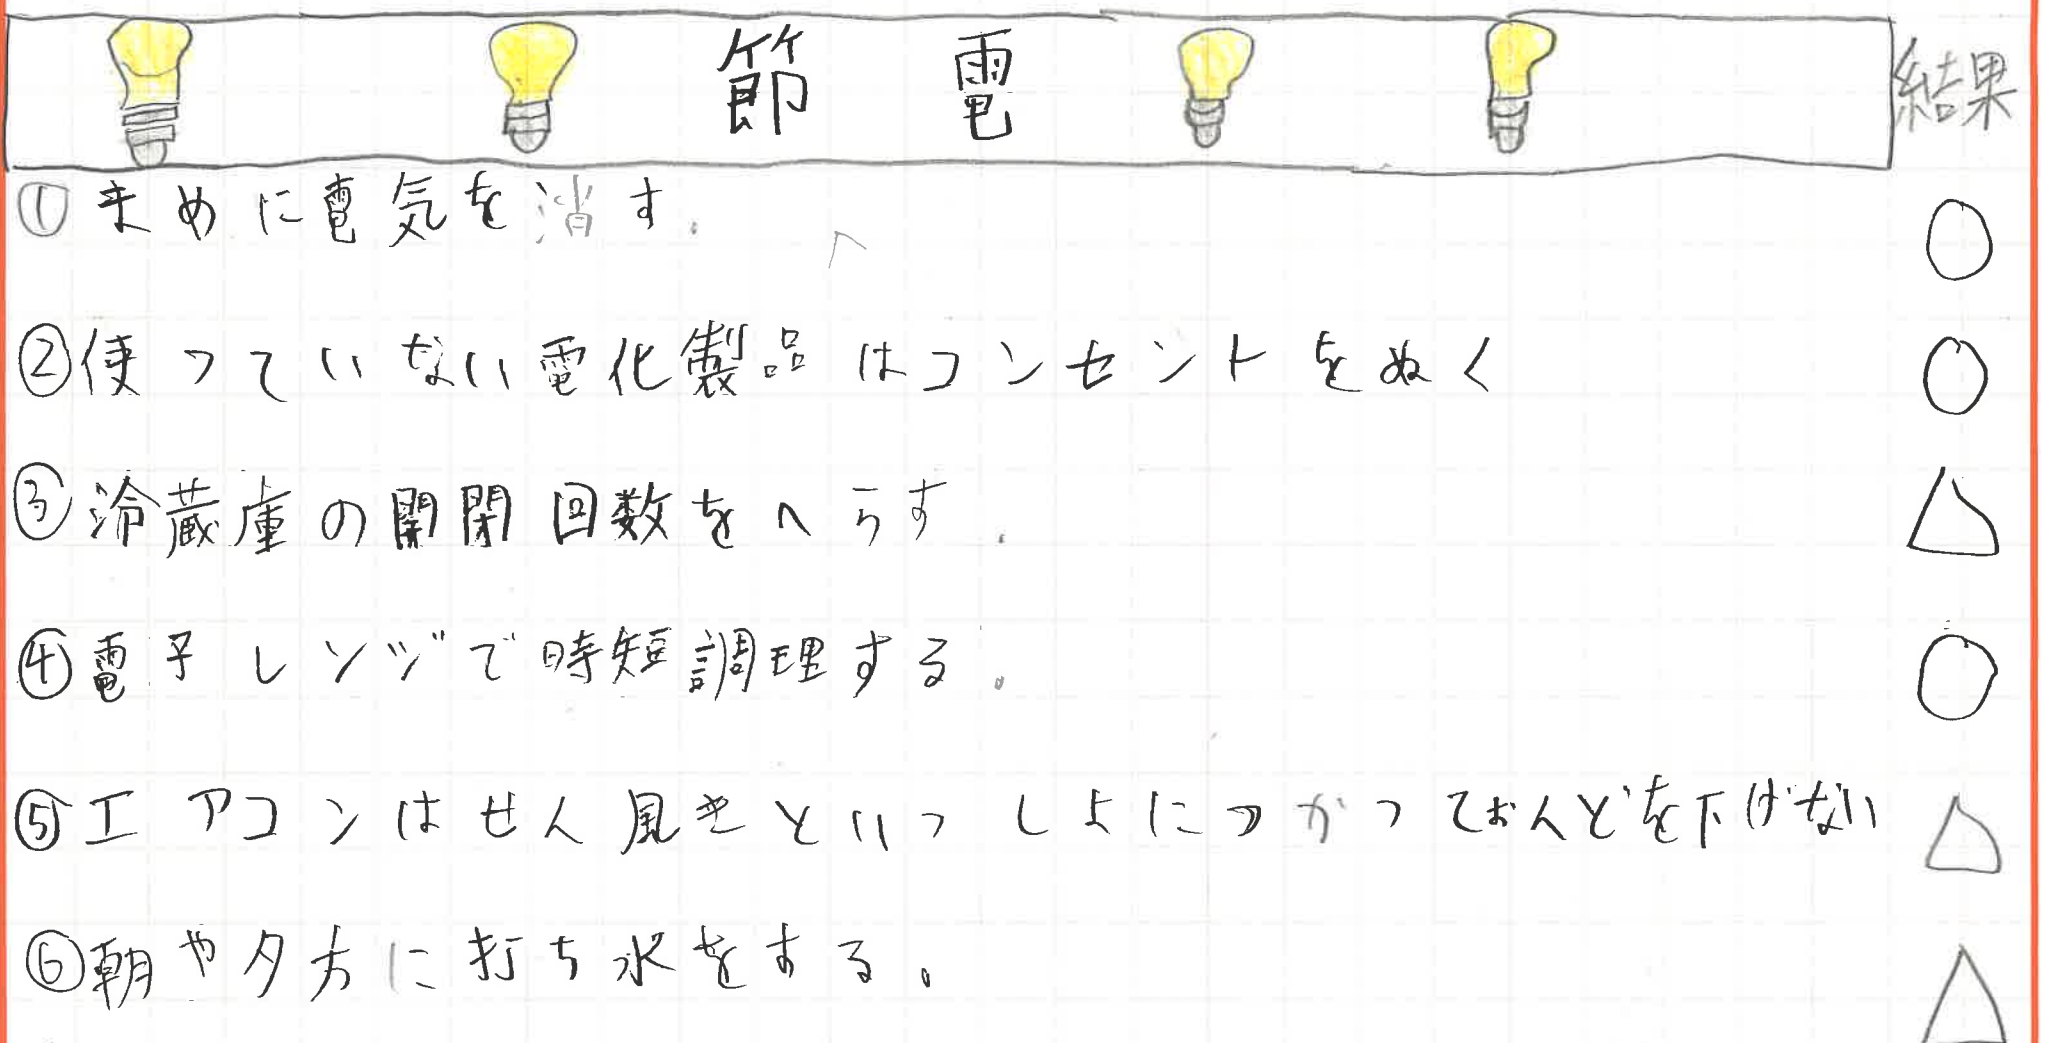 節電 結果
①まめに電気を消す。 ○
②使っていない電化製品はコンセントをぬく ○
③冷蔵庫の開閉回数をへらす。 △
④電子レンジで時短調理する。 ○
⑤エアコンはせん風きといっしょにつかっておんどを下げない △
⑥朝や夕方に打ち水をする。 △